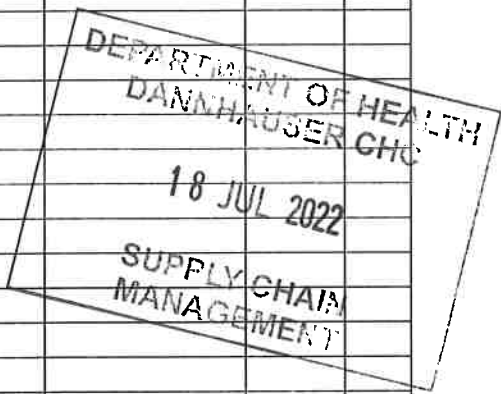 DEPARTMENT OF HEALTH
DANNHAUSER CHC
18 JUL 2022
SUPPLY CHAIN
MANAGEMENT